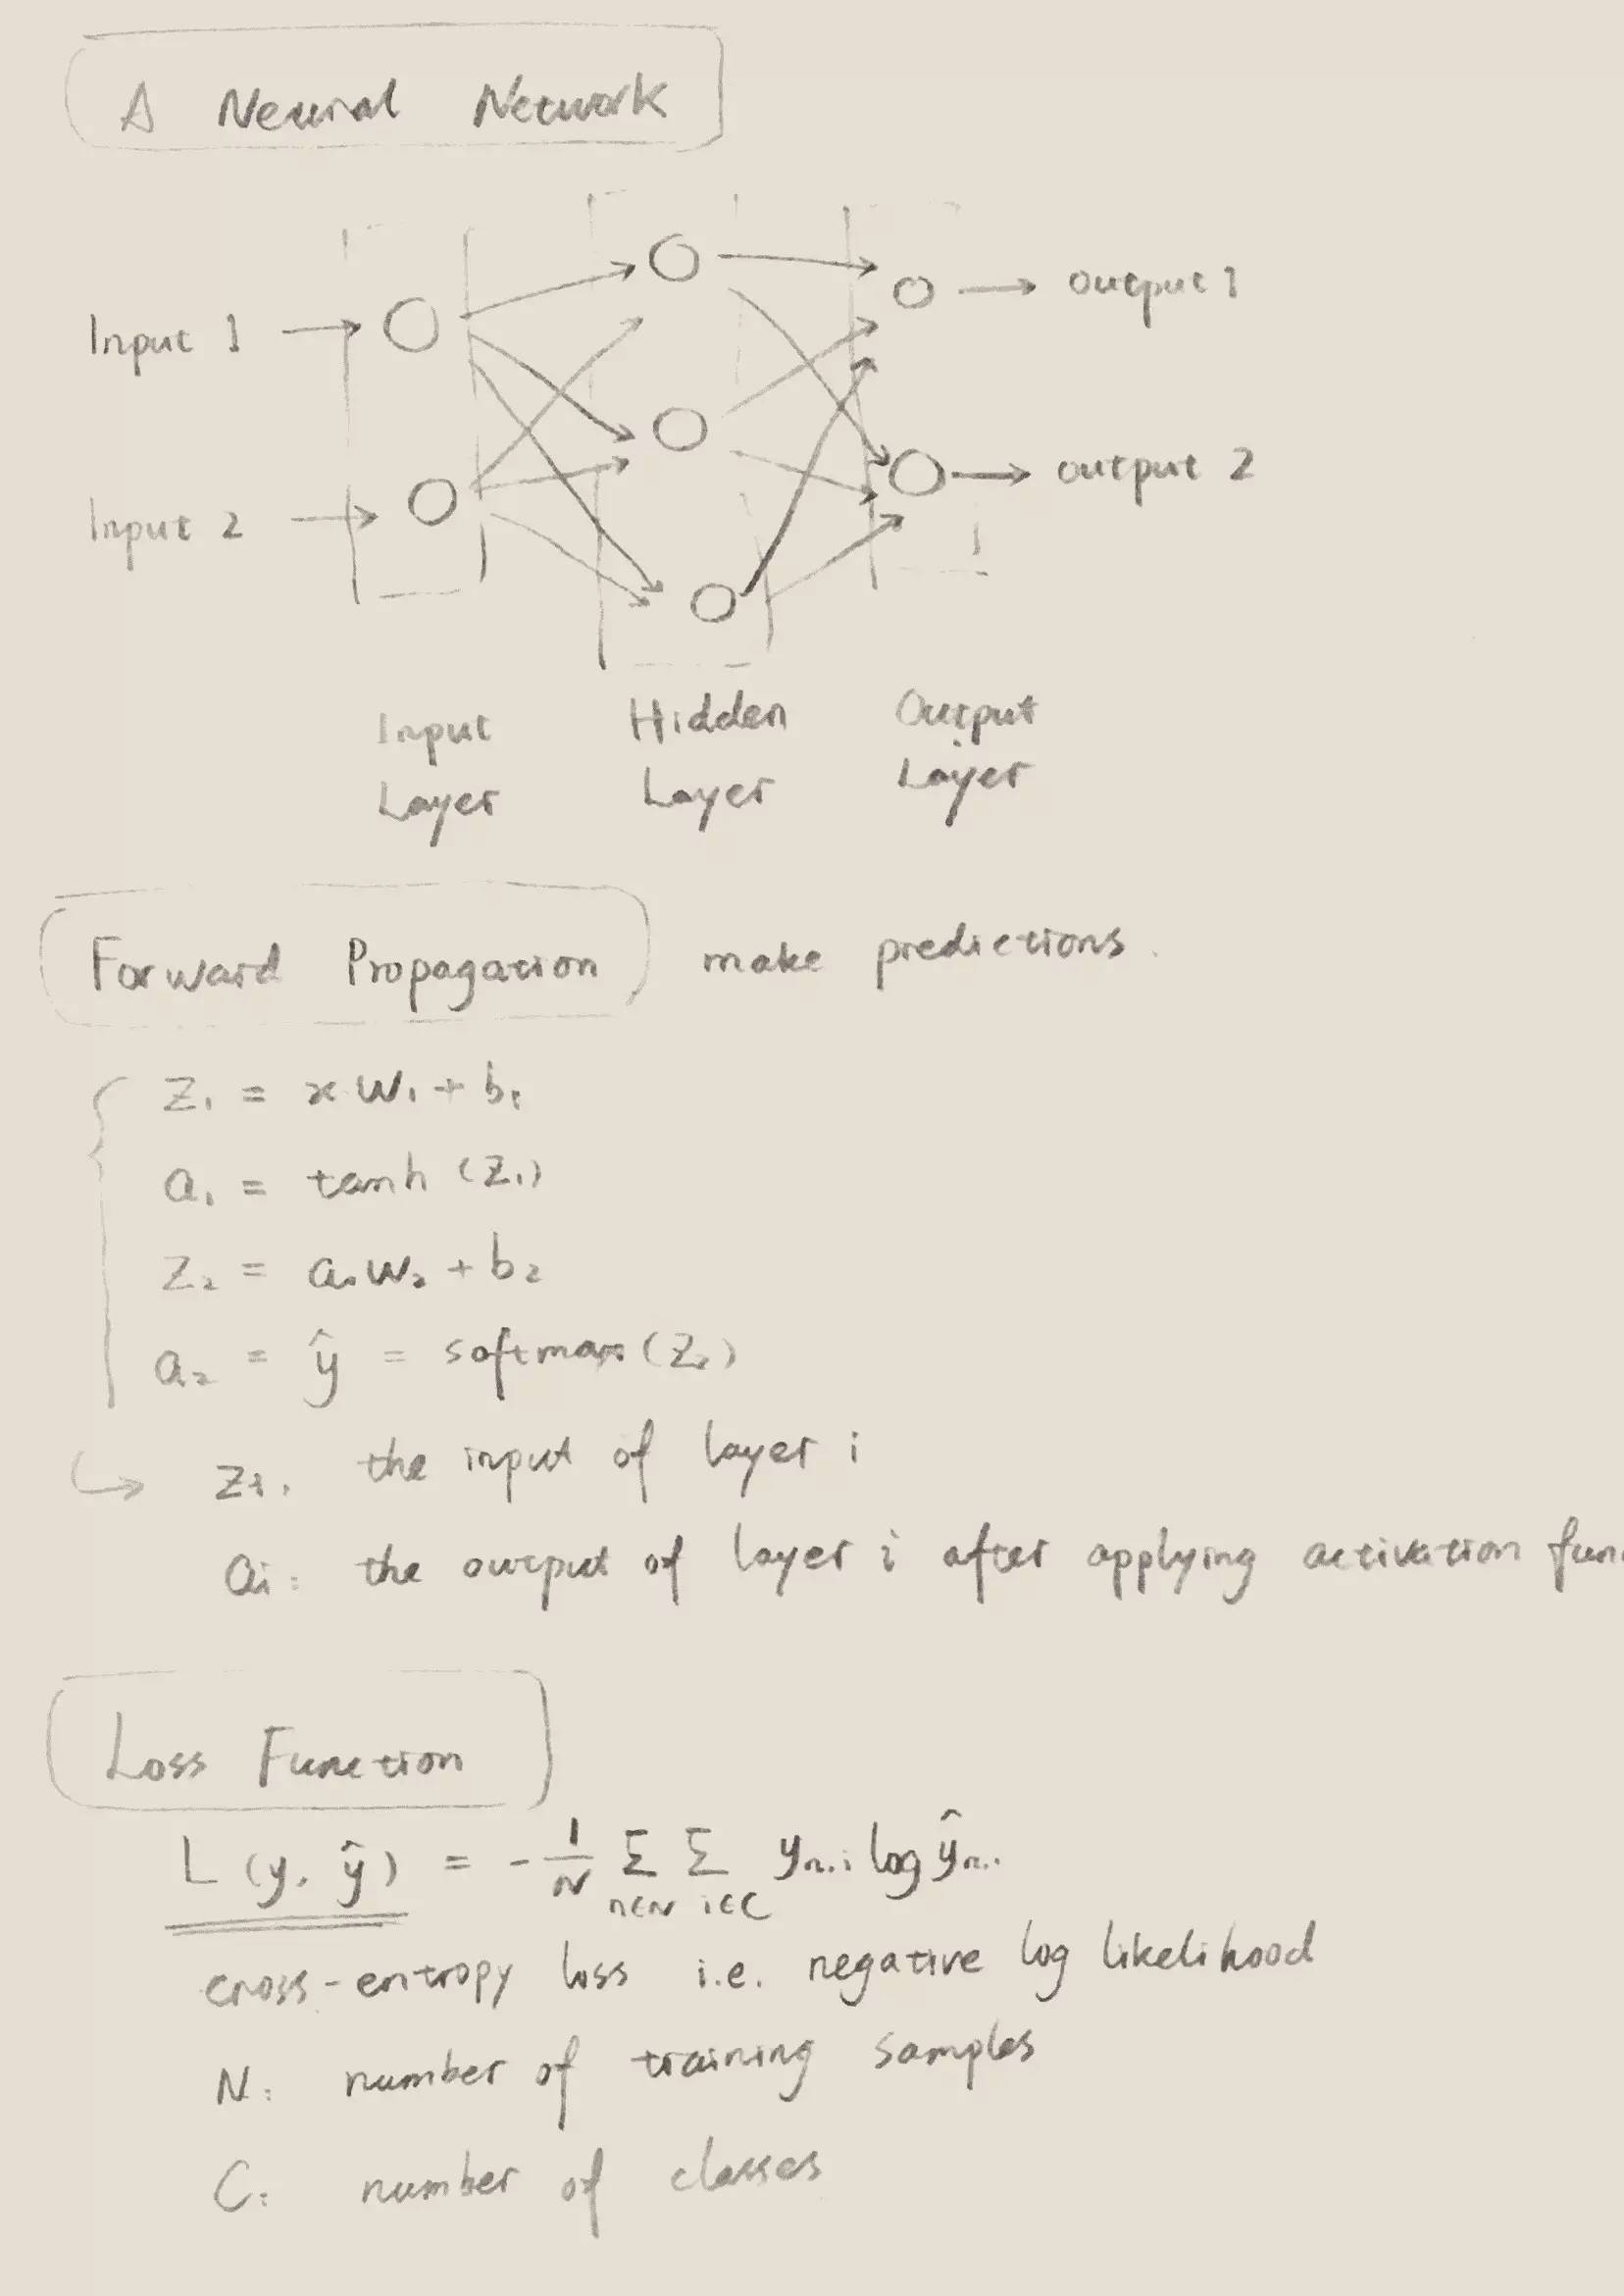 A Neural Network
Input 1
output 1
Input 2
output 2
Input Layer
Hidden Layer
Output Layer
Forward Propagation make predictions.
z₁ = x W₁ + b₁
a₁ = tanh (z₁)
z₂ = a₁W₂ + b₂
a₂ = ŷ = softmax (z₂)
↳ zi: the input of layer i
ai: the output of layer i after applying activation fun
Loss Function
L (y, ŷ) = - 1/N Σ n∈N Σ i∈C yn,i log ŷn,i
cross-entropy loss i.e. negative log likelihood
N: number of training samples
C: number of classes